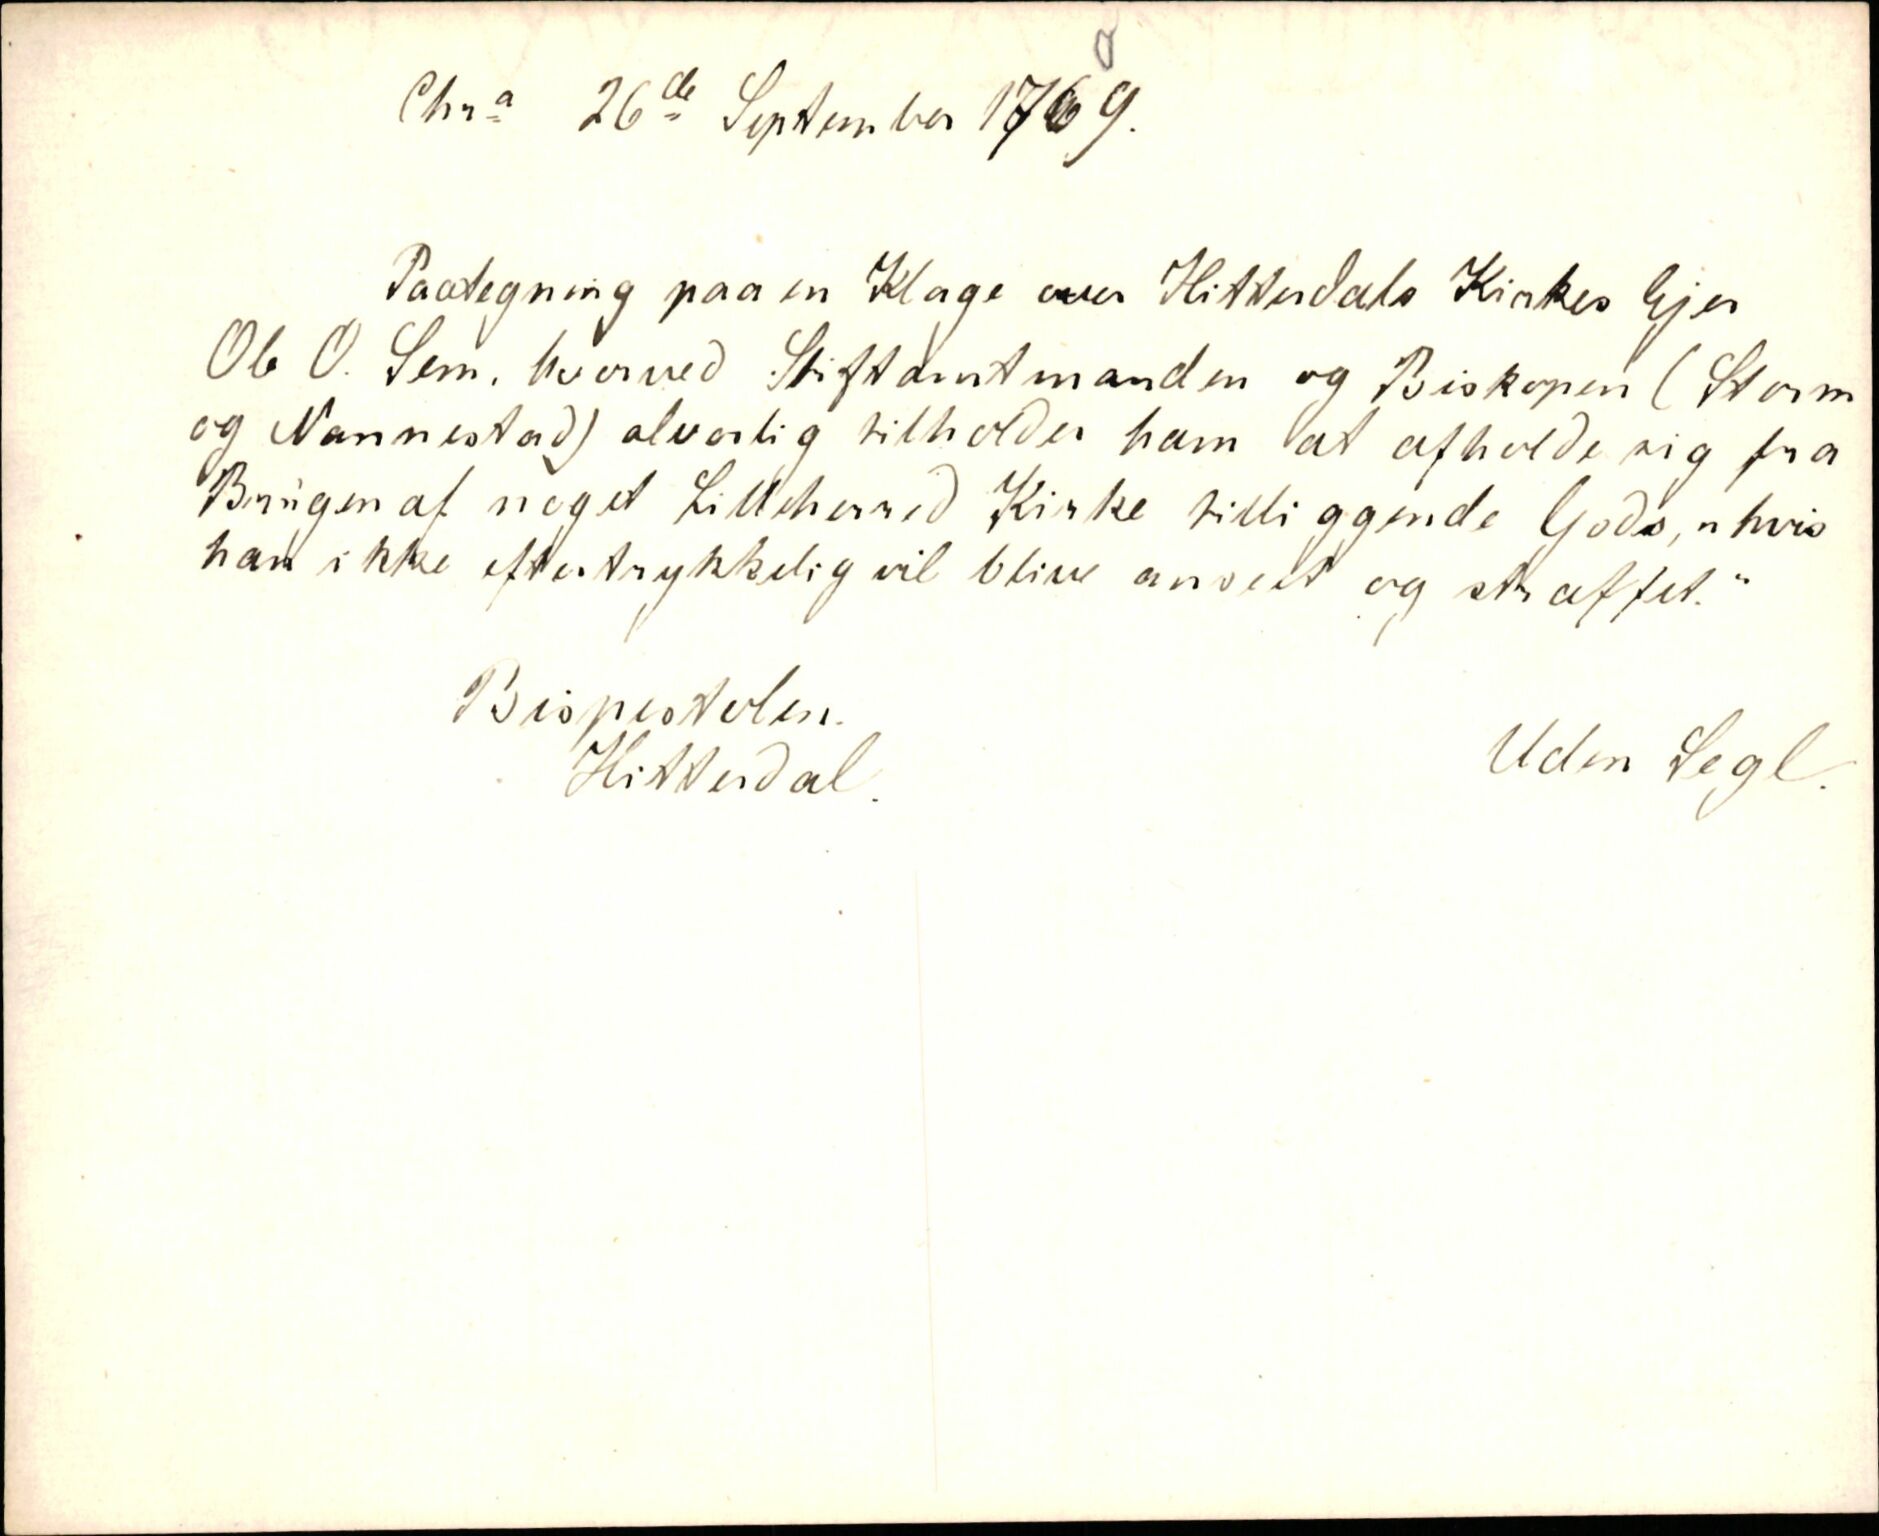 a
Chr.a 26de September 1769.
Paategning paa en Klage over Hitterdals Kirkes Ejer
Ole O. Sem, hvorved Stiftamtmanden og Biskopen (Storm
og Nannestad) alvorlig tilholder ham at afholde sig fra
Brugen af noget Lilleherred Kirke tilliggende Gods, „hvis
han ikke eftertrykkelig vil blive anseet og straffet.“
Bispestolen.
Hitterdal.
Uden Segl.